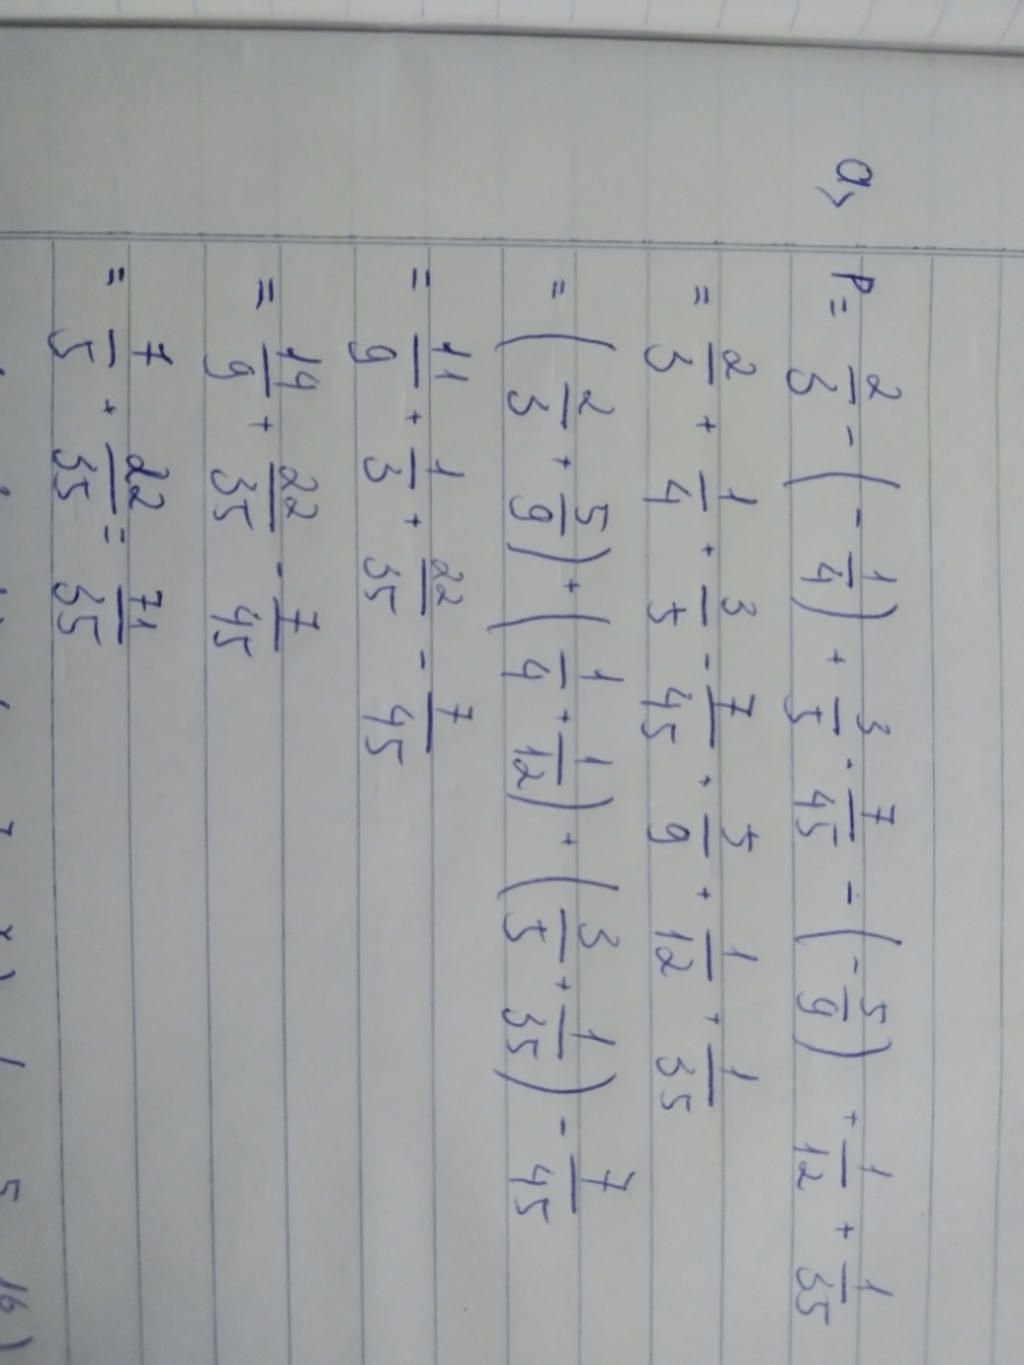 a, P = 2/3 - (-1/4) + 3/5 - 7/45 - (-5/9) + 1/12 + 1/35
= 2/3 + 1/4 + 3/5 - 7/45 + 5/9 + 1/12 + 1/35
= (2/3 + 5/9) + (1/4 + 1/12) + (3/5 + 1/35) - 7/45
= 11/9 + 1/3 + 22/35 - 7/45
= 14/9 + 22/35 - 7/45
= 7/5 + 22/35 = 71/35